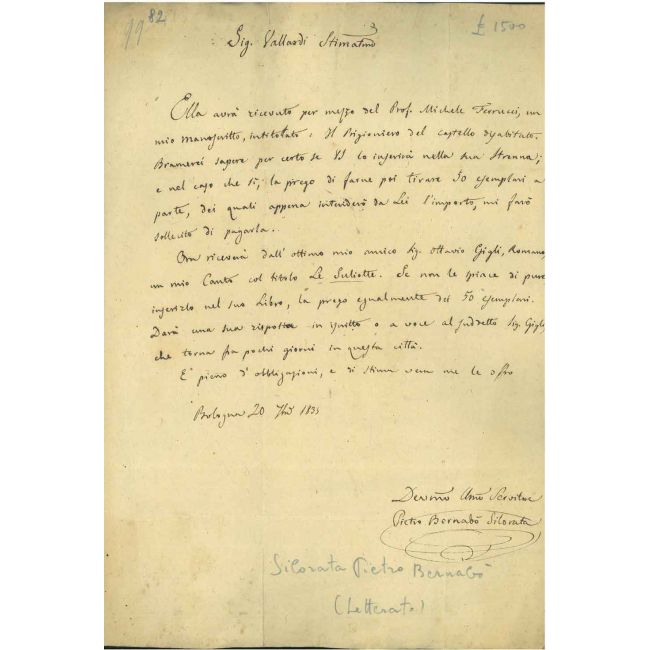 99 82
£ 1500
Sig. Vallardi Stimatmo
Ella avrà ricevuto per mezzo del Prof. Michele Ferrucci, un
mio manoscritto, intitolato: Il Prigioniero del castello disabitato.
Bramerei sapere per certo se VS lo inserirà nella sua Strenna;
e nel caso che sì, la prego di farne poi tirare 50 esemplari a
parte, dei quali appena intenderò da Lei l'importo, mi farò
sollecito di pagarla.
Ora riceverà dall'ottimo mio amico Sig. Ottavio Gigli, Romano,
un mio Canto col titolo Le Suliotte. Se non le spiace di pure
inserirlo nel suo Libro, la prego egualmente dei 50 esemplari.
Darà una sua risposta in iscritto o a voce al suddetto Sig. Gigli,
che torna fra pochi giorni in questa città.
E pieno d'obbligazioni, e di stima vera me le offro
Bologna 20 1835
Devmo Servitore
Pietro Bernabò Silorata
Silorata Pietro Bernabò
(Letterato)